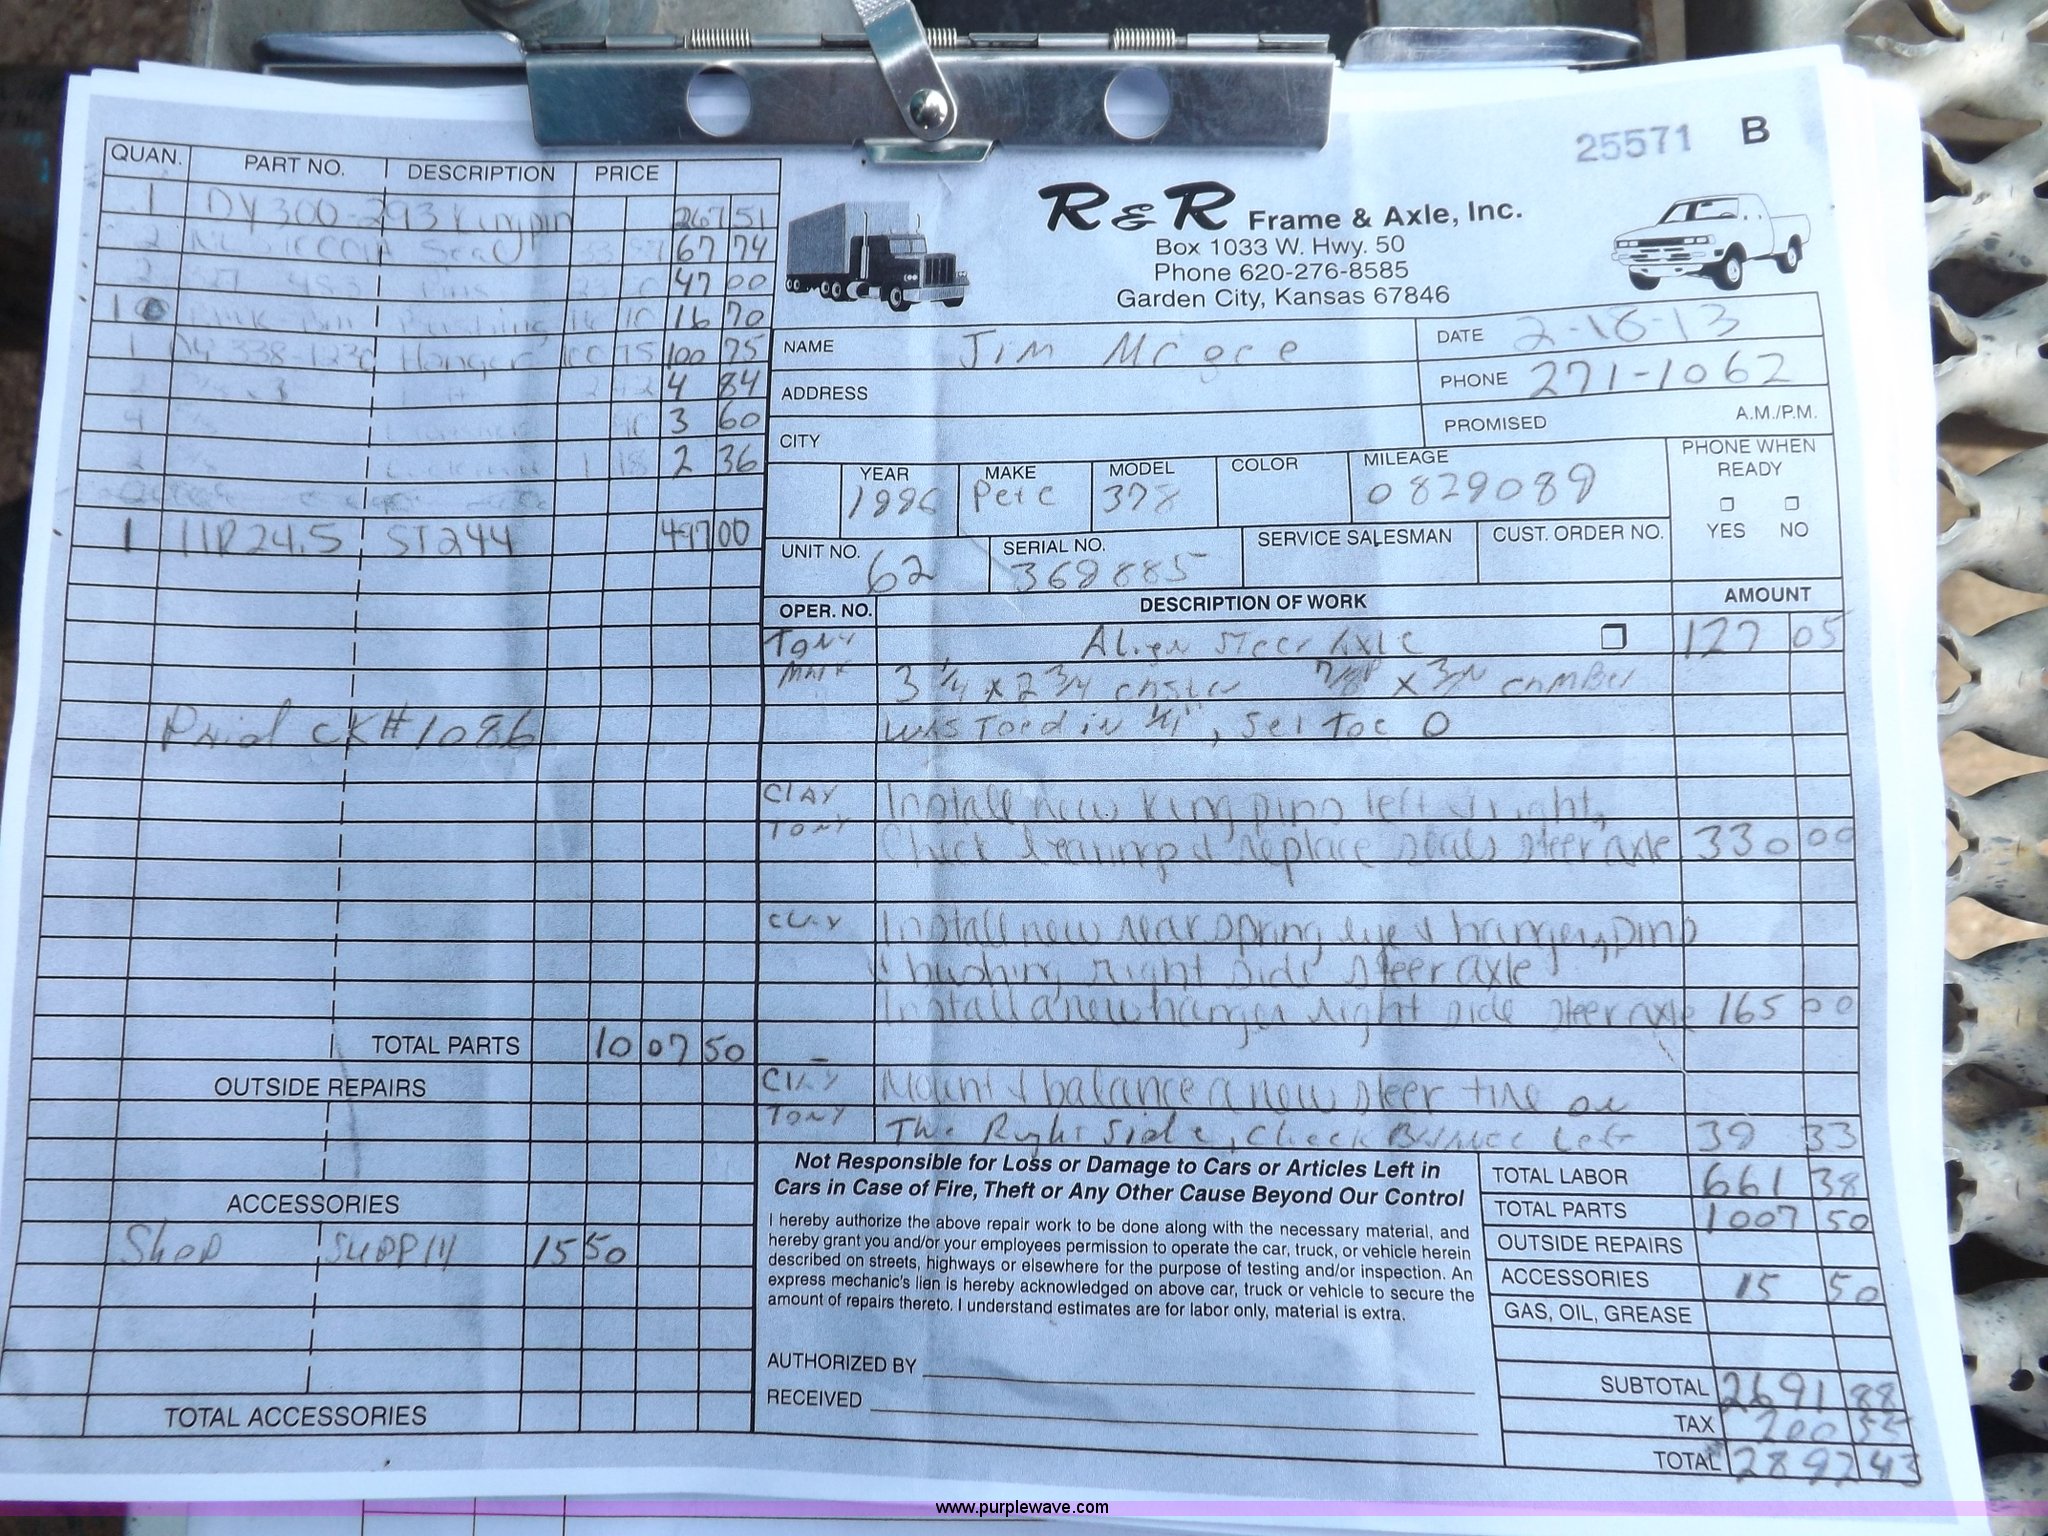 25571 B
R & R Frame & Axle, Inc.
Box 1033 W. Hwy. 50
Phone 620-276-8585
Garden City, Kansas 67846
QUAN. PART NO. DESCRIPTION PRICE
1 DY300-293 Kingpin 267 51
2 Seal 67 74
2 47 00
1 Bushing 16 70
1 338-1230 Hanger 100 75 100 75
2 4 84
4 3 60
2 1 18 2 36
1 11R24.5 ST244 497 00
Paid CK# 1086
TOTAL PARTS 1007 50
OUTSIDE REPAIRS
ACCESSORIES
Shop supply 15 50
TOTAL ACCESSORIES
NAME Jim DATE 2-18-13
ADDRESS PHONE 271-1062
CITY PROMISED A.M./P.M.
YEAR MAKE MODEL COLOR MILEAGE PHONE WHEN READY
Pete 378 0829089
YES NO
UNIT NO. SERIAL NO. SERVICE SALESMAN CUST. ORDER NO.
62 368885
OPER. NO. DESCRIPTION OF WORK AMOUNT
Tony Align Steer Axle 127 05
3 1/4 x 2 3/4 caster camber
was Toed in , set Toe 0
Clay Install new king pins left & right,
Tony Check bearings & replace seals steer axle 330 00
Clay Install new rear spring eye & hanger, pins
& bushing right side steer axle
Install a new hanger right side steer axle 165 00
Clay Mount & balance a new steer tire on
Tony The Right Side, Check Balance Left 39 33
Not Responsible for Loss or Damage to Cars or Articles Left in
Cars in Case of Fire, Theft or Any Other Cause Beyond Our Control
I hereby authorize the above repair work to be done along with the necessary material, and
hereby grant you and/or your employees permission to operate the car, truck, or vehicle herein
described on streets, highways or elsewhere for the purpose of testing and/or inspection. An
express mechanic's lien is hereby acknowledged on above car, truck or vehicle to secure the
amount of repairs thereto. I understand estimates are for labor only, material is extra.
AUTHORIZED BY
RECEIVED
TOTAL LABOR 661 38
TOTAL PARTS 1007 50
OUTSIDE REPAIRS
ACCESSORIES 15 50
GAS, OIL, GREASE
SUBTOTAL 2691 88
TAX 200 55
TOTAL 2892 43
www.purplewave.com